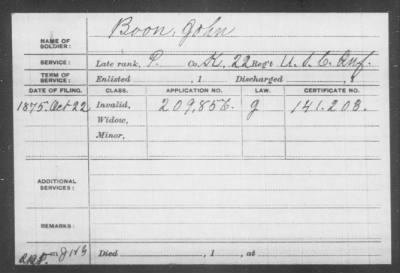 NAME OF SOLDIER: Boon, John
SERVICE: Late rank, P. Co. K, 22 Reg't U. S. C. Inf.
TERM OF SERVICE: Enlisted , 1 Discharged , 1
DATE OF FILING. CLASS. APPLICATION NO. LAW. CERTIFICATE NO.
1875. Oct 22 Invalid, 209,856. G 141.203.
Widow,
Minor,
ADDITIONAL SERVICES:
REMARKS:
Died , 1 , at